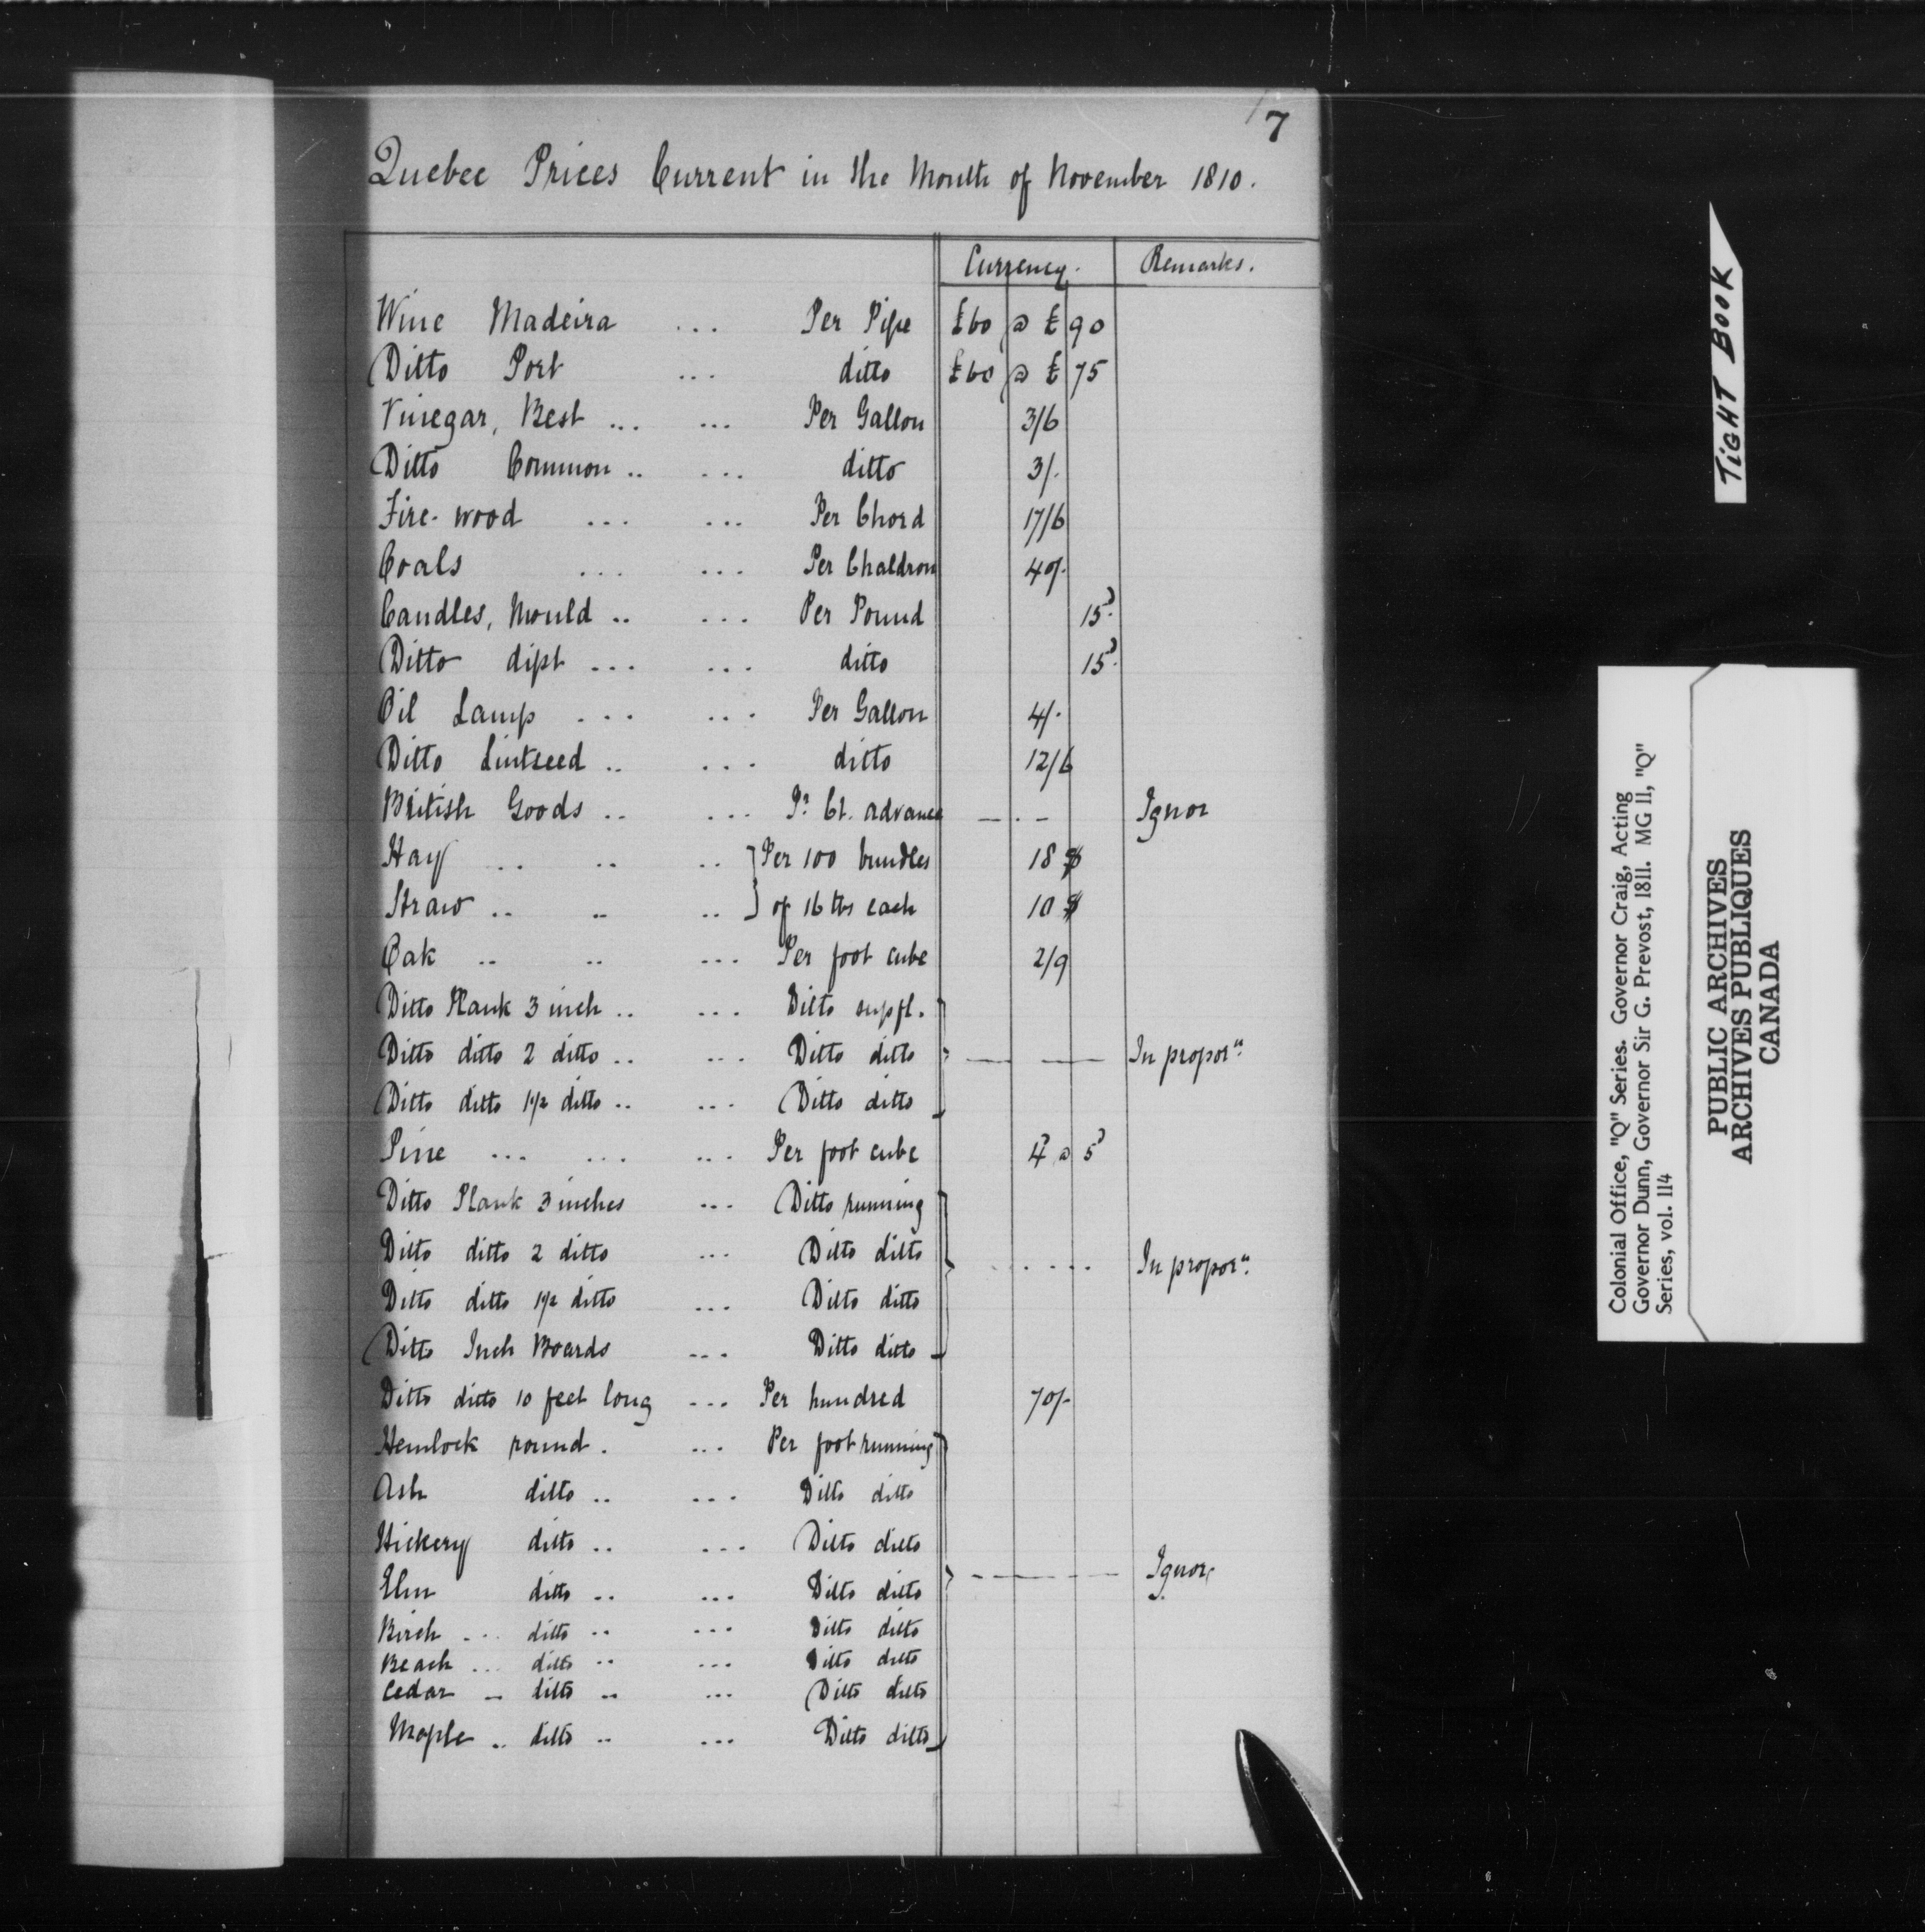 7
Quebec Prices Current in the Month of November 1810.
Currency. Remarks.
Wine Madeira ... Per Pipe £60 @ £90
Ditto Port ... ditto £60 @ £75
Vinegar, Best ... ... Per Gallon 3/6
Ditto Common .. ... ditto 3/.
Fire-wood ... ... Per Chord 17/6
Coals ... ... Per Chaldron 40/.
Candles, Mould .. ... Per Pound 15d.
Ditto dipt ... ... ditto 15d.
Oil Lamp ... ... Per Gallon 4/.
Ditto Lintseed .. ... ditto 12/6
British Goods .. ... Pr Ct. advance — . — Ignor
Hay .. .. .. } Per 100 bundles 18 $
Straw .. .. .. } of 16 lbs each 10 $
Oak .. .. ... Per foot cube 2/9
Ditto Plank 3 inch .. ... Ditto supfl.
Ditto ditto 2 ditto .. ... Ditto ditto } — — In proporn.
Ditto ditto 1 1/2 ditto .. ... Ditto ditto
Pine ... ... ... Per foot cube 4d @ 5d
Ditto Plank 3 inches ... Ditto running
Ditto ditto 2 ditto ... Ditto ditto } .... In proporn.
Ditto ditto 1 1/2 ditto ... Ditto ditto
Ditto Inch Boards ... Ditto ditto
Ditto ditto 10 feet long ... Per hundred 70/-
Hemlock round . ... Per foot running
Ash ditto .. ... Ditto ditto
Hickery ditto .. ... Ditto ditto
Elm ditto .. ... Ditto ditto } - - - - Ignor
Birch ... ditto .. ... Ditto ditto
Beach ... ditto .. ... Ditto ditto
Cedar .. ditto .. ... Ditto ditto
Maple .. ditto .. ... Ditto ditto
TIGHT BOOK
Colonial Office, "Q" Series. Governor Craig, Acting
Governor Dunn, Governor Sir G. Prevost, 1811. MG 11, "Q"
Series, vol. 114
PUBLIC ARCHIVES
ARCHIVES PUBLIQUES
CANADA